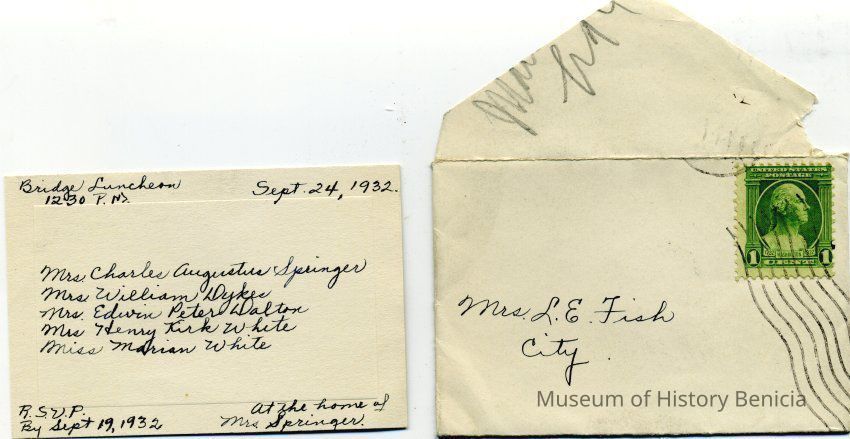 Bridge Luncheon
12:30 P.M.
Sept. 24, 1932.
Mrs. Charles Augustus Springer
Mrs. William Dykes
Mrs. Edwin Peter Dalton
Mrs Henry Kirk White
Miss Marian White
R.S.V.P.
By Sept 19, 1932
At the home of
Mrs Springer.
UNITED STATES
POSTAGE
1 CENT 1
Mrs. L. E. Fish
City.
Museum of History Benicia